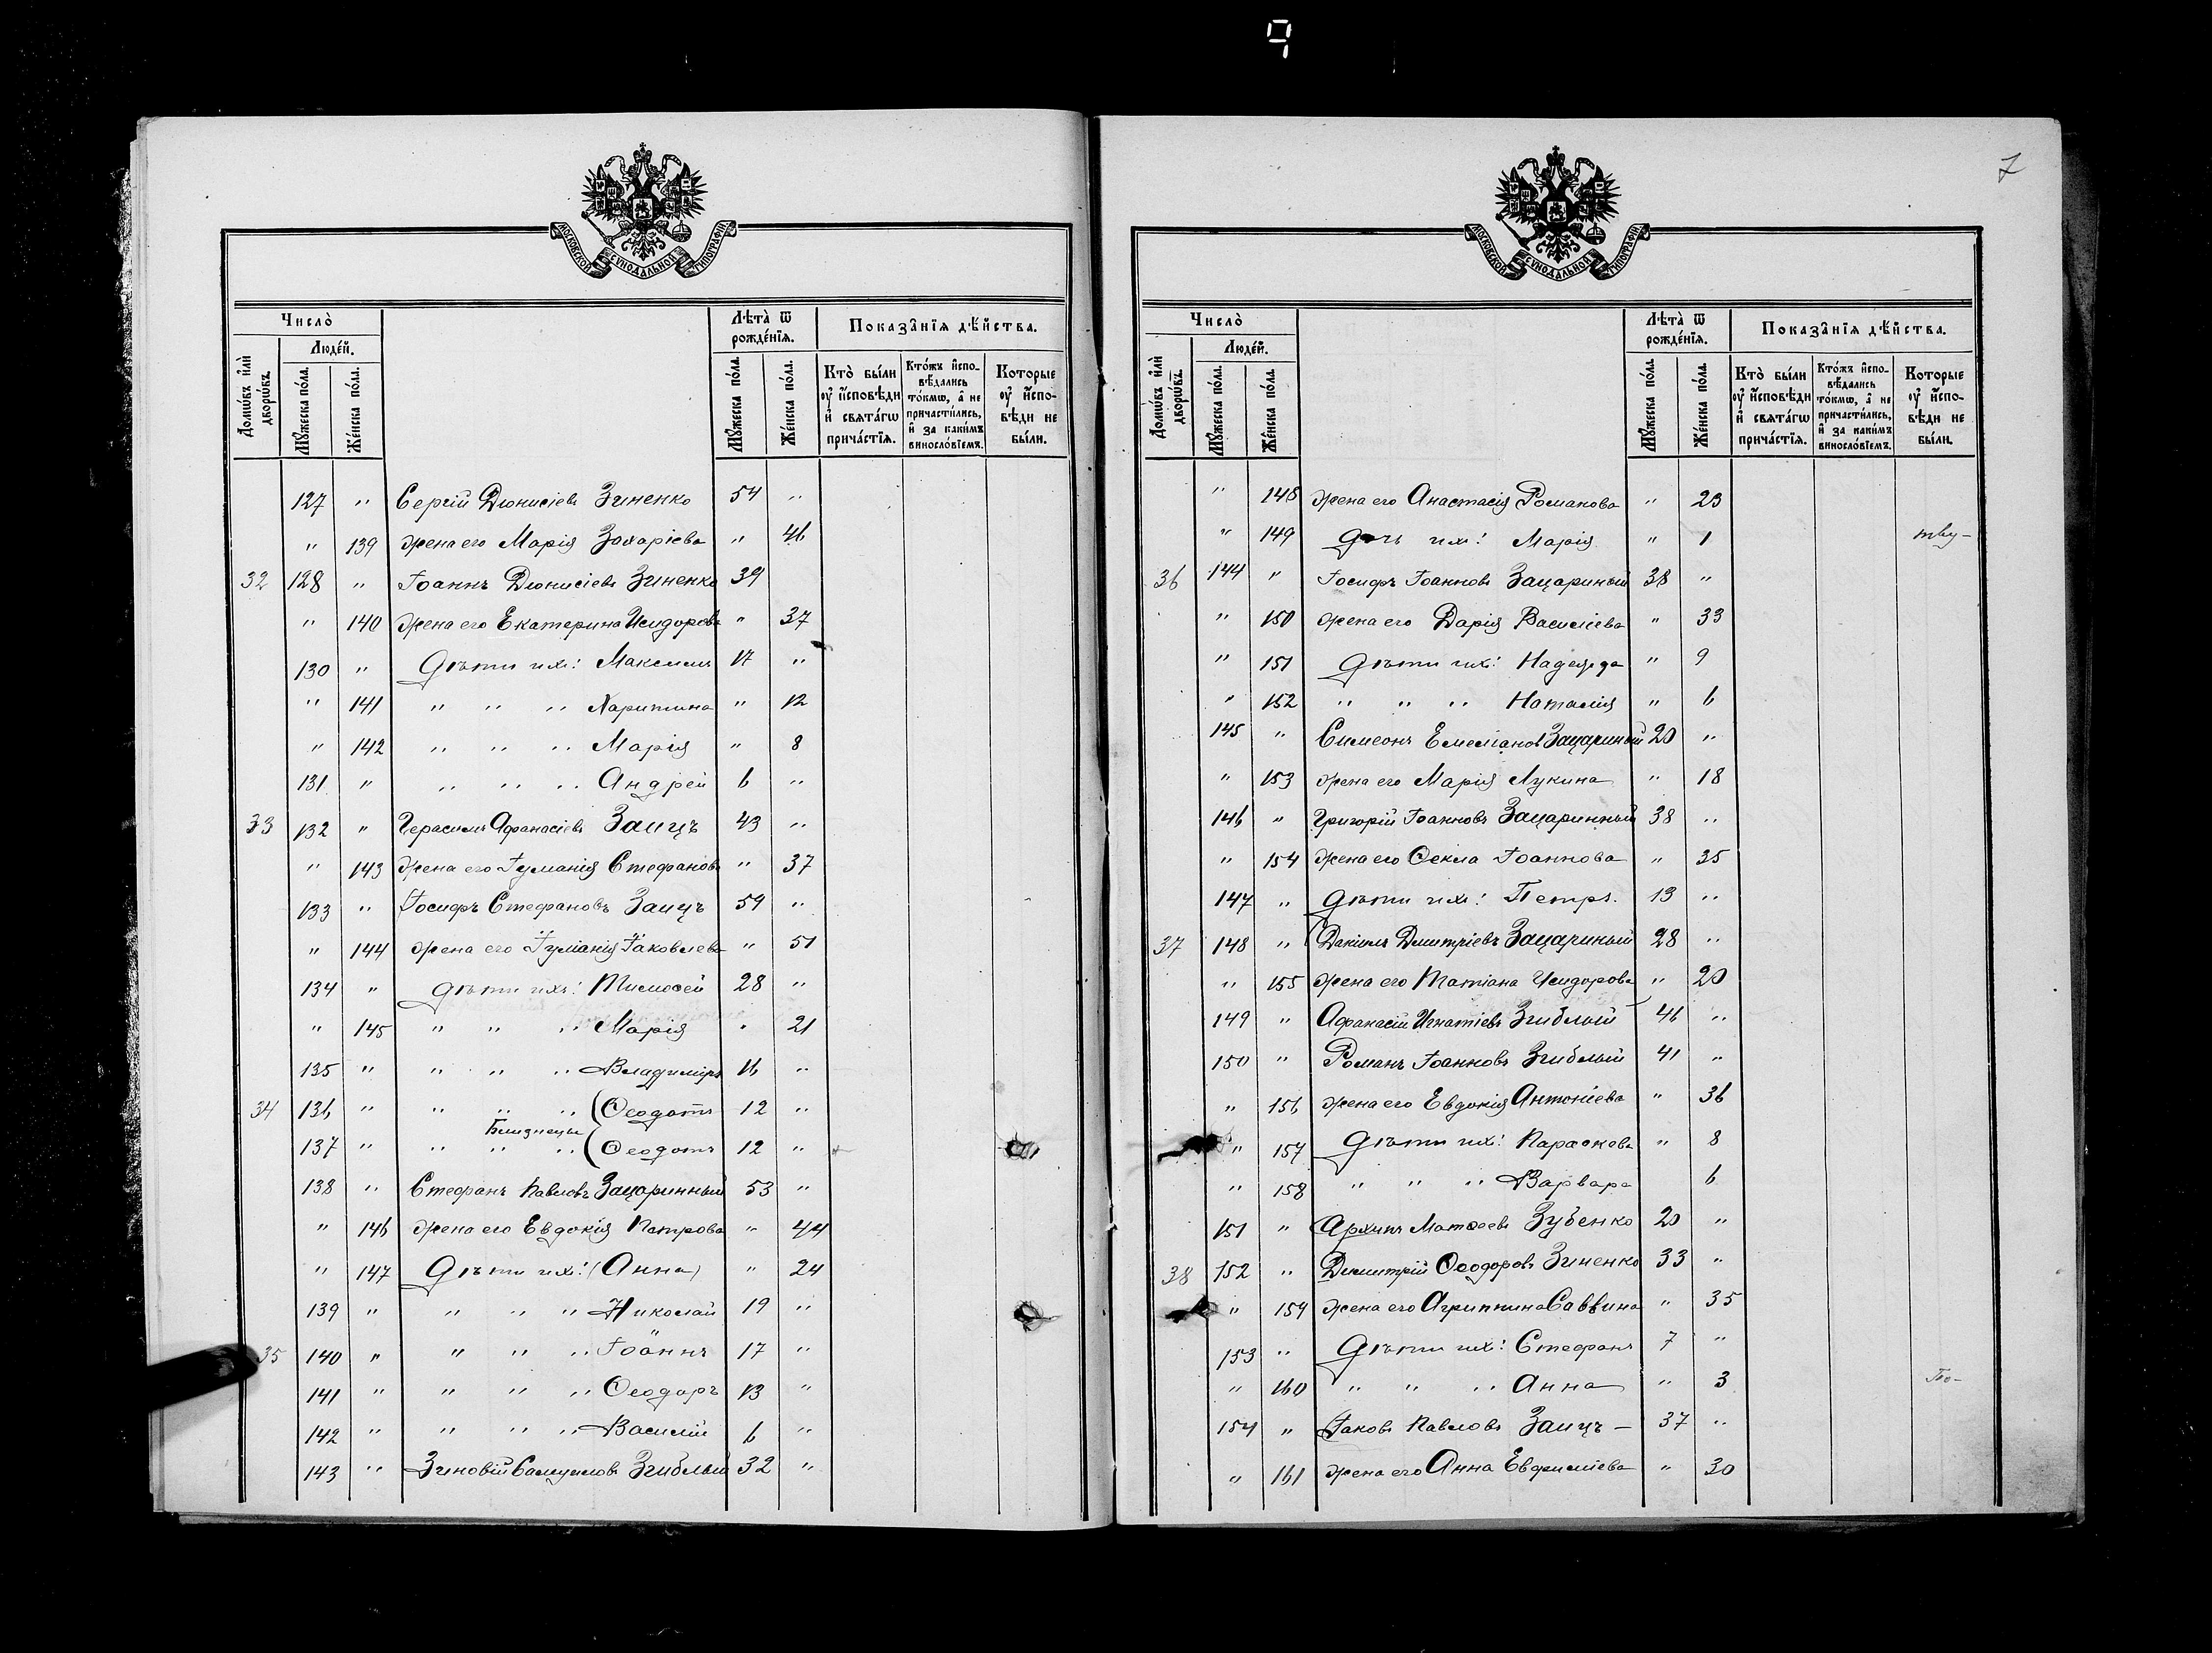 9
МОСКОВСКОЙ СѴНОДАЛЬНОЙ ТИПОГРАФІИ
Число̀
Людей.
Домѡвъ и҆лѝ дворѡвъ.
Мꙋжеска по́ла.
Же́нска по́ла.
Лѣта̀ ѿ рожде́нїѧ.
Мꙋжеска по́ла.
Же́нска по́ла.
Показа̑нїѧ дѣ́йства.
Кто̀ бы́ли ᲂу҆ и҆сповѣди и҆ свѧта́гѡ прича́стїѧ.
Кто́жъ и҆спо-вѣ́дались то́кмѡ, а҆ не причасти́лись, и҆ за каки́мъ винословіемъ.
Которые ᲂу҆ и҆спо-вѣди не бы́ли.
127 " Сергій Діонисіевъ Зиненко 54 "
" 139 жена его Марія Захаріева " 46
32 128 " Іоаннъ Діонисіевъ Зиненко 39
" 140 жена его Екатерина Исидорова " 37
130 " Дѣти ихъ: Максимъ 17 "
" 141 " " " Харитина " 12
" 142 " " " Марія " 8
131 " " " " Андрей 6 "
33 132 " Герасимъ Афанасіевъ Заицъ 43 "
" 143 жена его Іуліанія Стефанова " 37
133 " Іосифъ Стефановъ Заицъ 59 "
" 144 жена его Іуліанія Іаковлева " 51
134 " дѣти ихъ: Тимоѳей 28 "
" 145 " " " Марія " 21
135 " " " " Владиміръ 16 "
34 136 " " " " (Ѳеодотъ 12 "
Близнецы
137 " " " " (Ѳеодотъ 12 "
138 " Стефанъ Павловъ Зацаринный 53 "
" 146 жена его Евдокія Петрова " 44
" 147 Дѣти ихъ: (Анна) " 24
139 " " " " Николай 19 "
35 140 " " " " Іоаннъ 17 "
141 " " " " Ѳеодоръ 13 "
142 " " " " Василій 6 "
143 " Зиновій Самуиловъ Згиблый 32 "
7
МОСКОВСКОЙ СѴНОДАЛЬНОЙ ТИПОГРАФІИ
Число̀
Людей.
Домѡвъ и҆лѝ дворѡвъ.
Мꙋжеска по́ла.
Же́нска по́ла.
Лѣта̀ ѿ рожде́нїѧ.
Мꙋжеска по́ла.
Же́нска по́ла.
Показа̑нїѧ дѣ́йства.
Кто̀ бы́ли ᲂу҆ и҆сповѣди и҆ свѧта́гѡ прича́стїѧ.
Кто́жъ и҆спо-вѣ́дались то́кмѡ, а҆ не причасти́лись, и҆ за каки́мъ винословіемъ.
Которые ᲂу҆ и҆спо-вѣди не бы́ли.
" 148 жена его Анастасія Романова " 23
" 149 дочь ихъ: Марія " 1
36 144 " Іосифъ Іоанновъ Зацариный 38 "
" 150 жена его Дарія Василіева " 33
" 151 Дѣти ихъ: Надежда " 9
" 152 " " " Наталія " 6
145 " Симеонъ Емеліановъ Зацариный 20 "
" 153 жена его Марія Лукина " 18
146 " Григорій Іоанновъ Зацаринный 38 "
" 154 жена его Ѳекла Іоаннова " 35
147 " Дѣти ихъ: Петръ. 13 "
37 148 " Даніилъ Дмитріевъ Зацариный 28 "
" 155 жена его Татіана Исидорова " 20
149 " Афанасій Игнатіевъ Згиблый 46 "
150 " Романъ Іоанновъ Згиблый 41 "
" 156 жена его Евдокія Антоніева " 36
" 157 Дѣти ихъ: Параскева " 8
" 158 " " " Варвара 6
151 " Архипъ Матѳеевъ Зубенко 20 "
38 152 " Димитрій Ѳеодоровъ Зиненко 33 "
" 159 жена его Агриппина Саввина " 35
153 " Дѣти ихъ: Стефанъ 7 "
" 160 " " " Анна " 3
154 " Іаковъ Павловъ Заицъ - 37 "
" 161 жена его Анна Евфиміева " 30